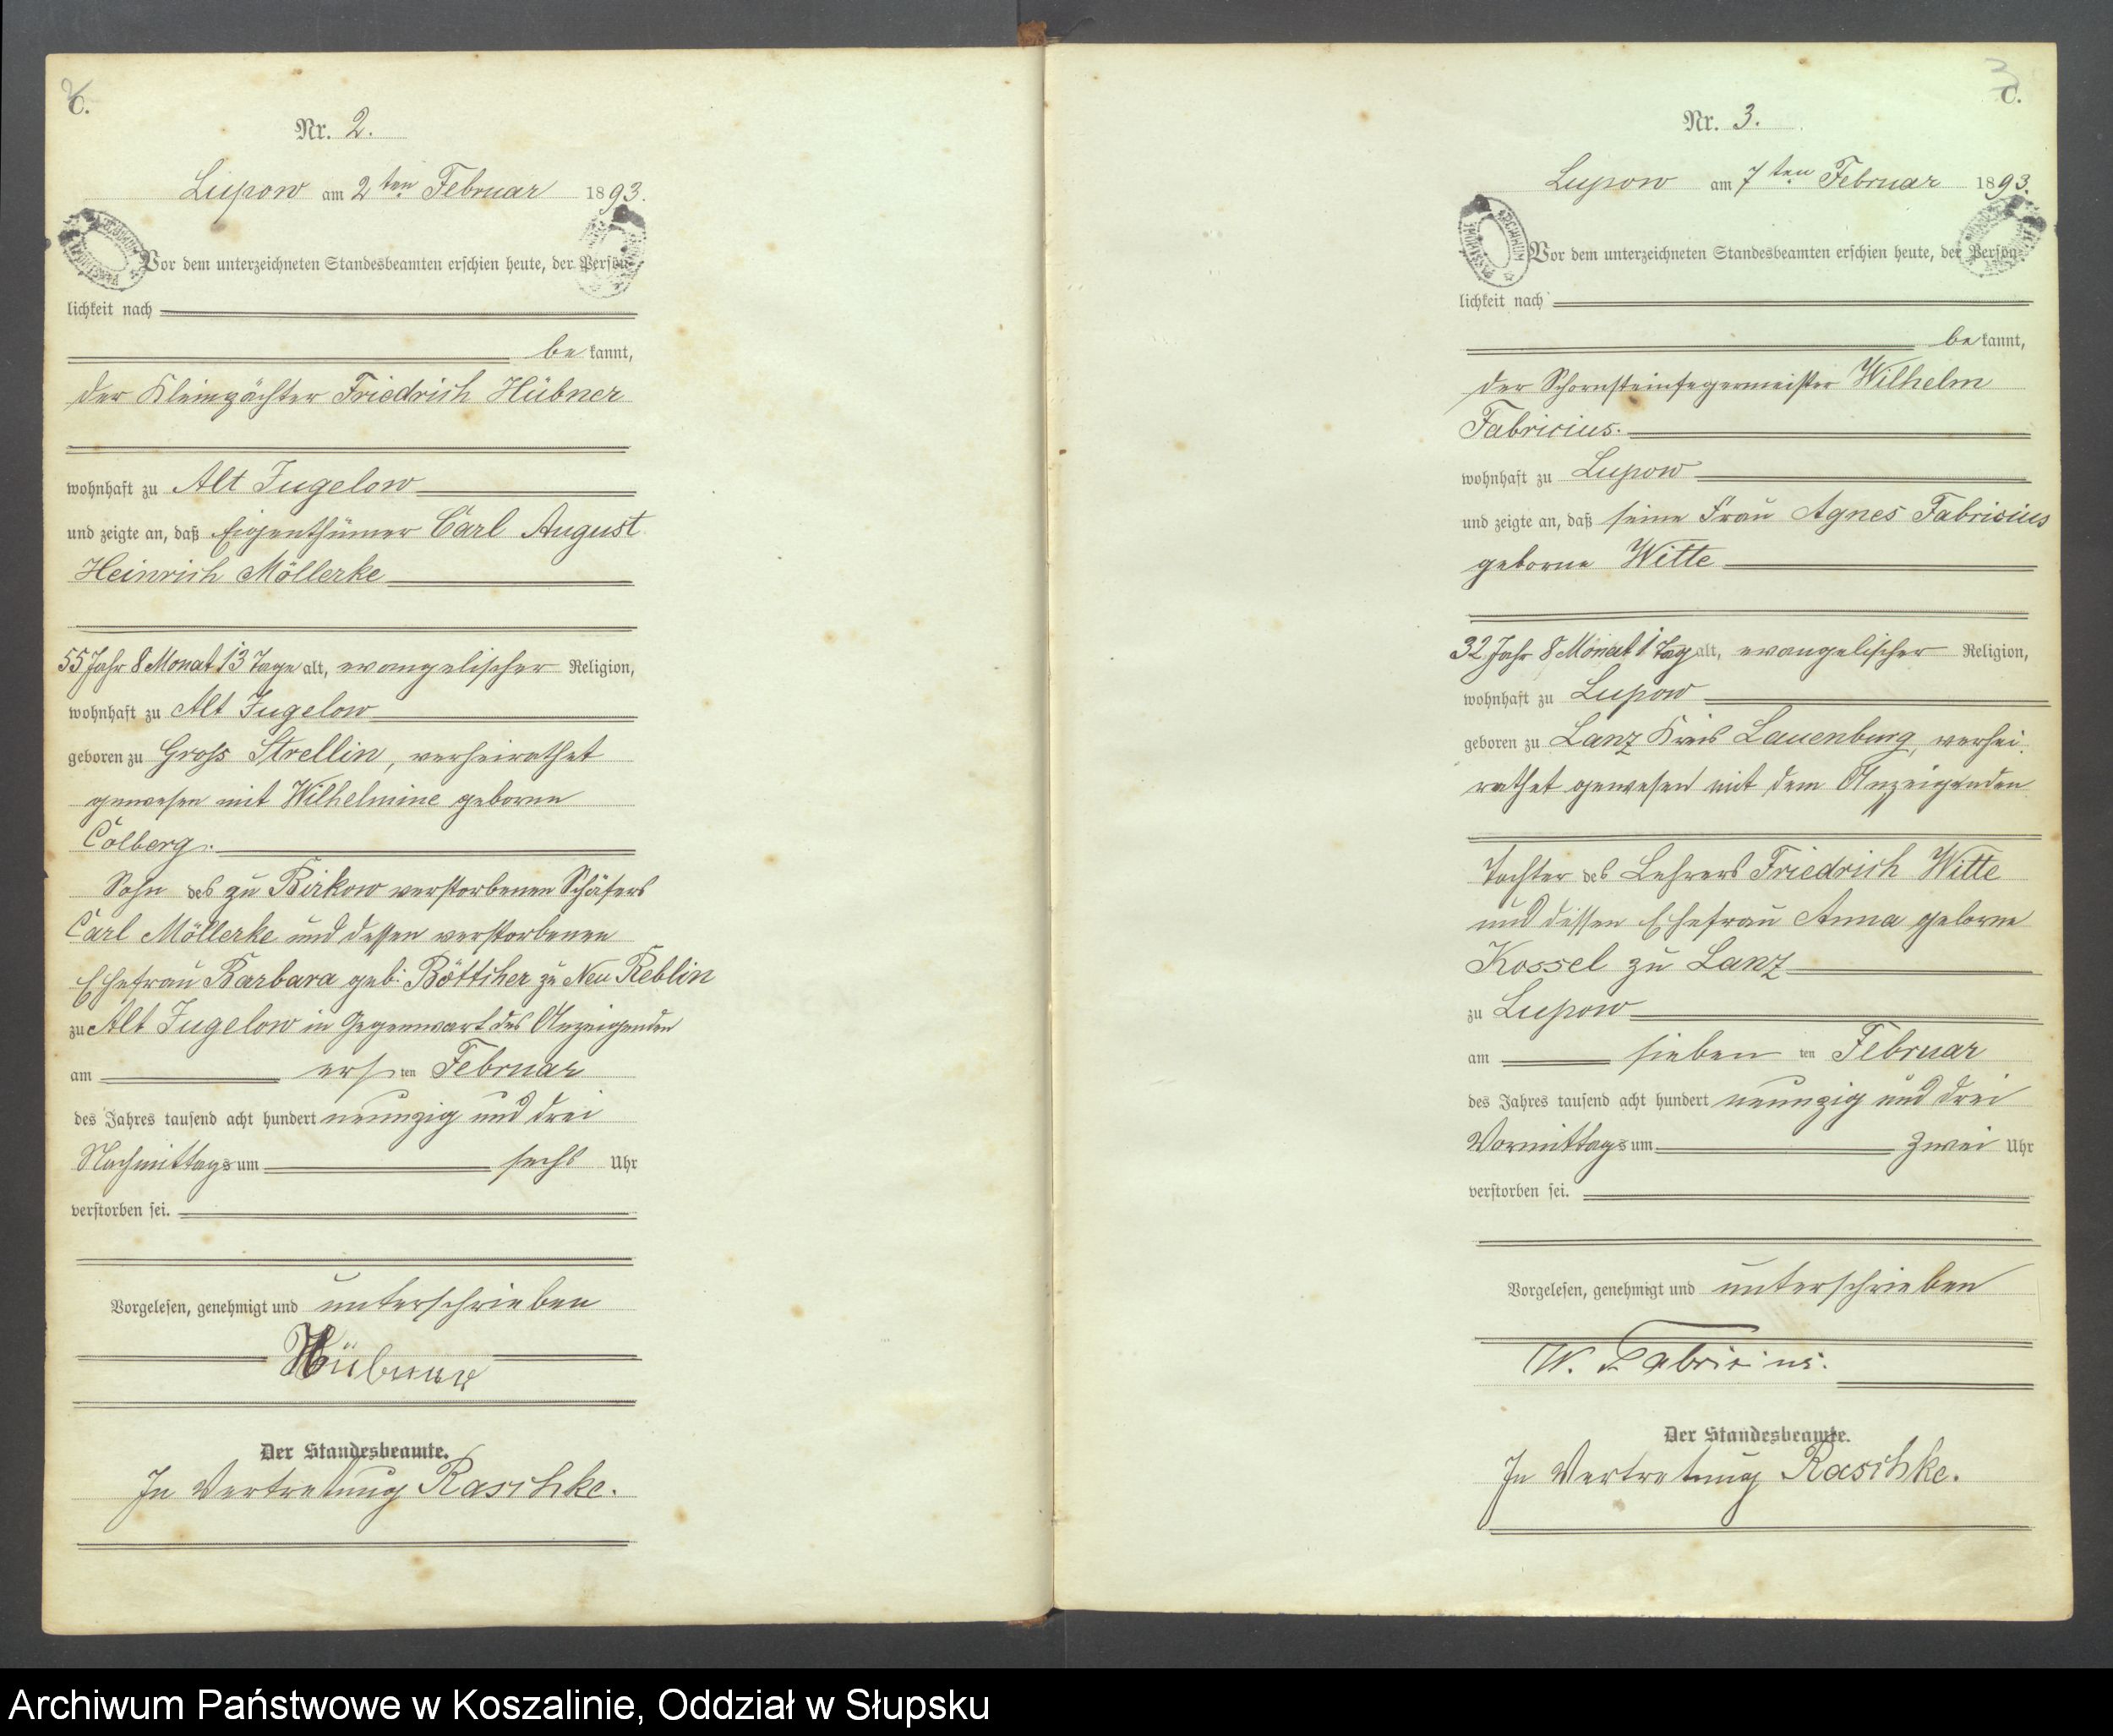 C.
Nr. 2.
Lupow am 2ten Februar 1893.
Vor dem unterzeichneten Standesbeamten erschien heute, der Persön-
lichkeit nach
be kannt,
der Kleinpächter Friedrich Hübner
wohnhaft zu Alt Jugelow
und zeigte an, daß Eigenthümer Carl August
Heinrich Möllerke
55 Jahr 8 Monat 13 Tage alt, evangelischer Religion,
wohnhaft zu Alt Jugelow
geboren zu Groß Strellin, verheirathet
gewesen mit Wilhelmine geborne
Colberg.
Sohn des zu Birkow verstorbenen Schäfers
Carl Möllerke und dessen verstorbenen
Ehefrau Barbara geb: Böttcher zu Neu Reblin
zu Alt Jugelow in Gegenwart des Anzeigenden
am ersten Februar
des Jahres tausend acht hundert neunzig und drei
Nachmittags um sechs Uhr
verstorben sei.
Vorgelesen, genehmigt und unterschrieben
Hübner
Der Standesbeamte.
In Vertretung Raschke.
3
C.
Nr. 3.
Lupow am 7ten Februar 1893.
Vor dem unterzeichneten Standesbeamten erschien heute, der Persön-
lichkeit nach
be kannt,
der Schornsteinfegermeister Wilhelm
Fabricius.
wohnhaft zu Lupow
und zeigte an, daß seine Frau Agnes Fabricius
geborne Witte
32 Jahr 8 Monat 1 Tag alt, evangelischer Religion,
wohnhaft zu Lupow
geboren zu Lanz Kreis Lauenburg, verhei-
rathet gewesen mit dem Anzeigenden
Tochter des Lehrers Friedrich Witte
und dessen Ehefrau Anna geborne
Kossel zu Lanz
zu Lupow
am sieben ten Februar
des Jahres tausend acht hundert neunzig und drei
Vormittags um zwei Uhr
verstorben sei.
Vorgelesen, genehmigt und unterschrieben
W. Fabricius.
Der Standesbeamte.
In Vertretung Raschke.
Archiwum Państwowe w Koszalinie, Oddział w Słupsku